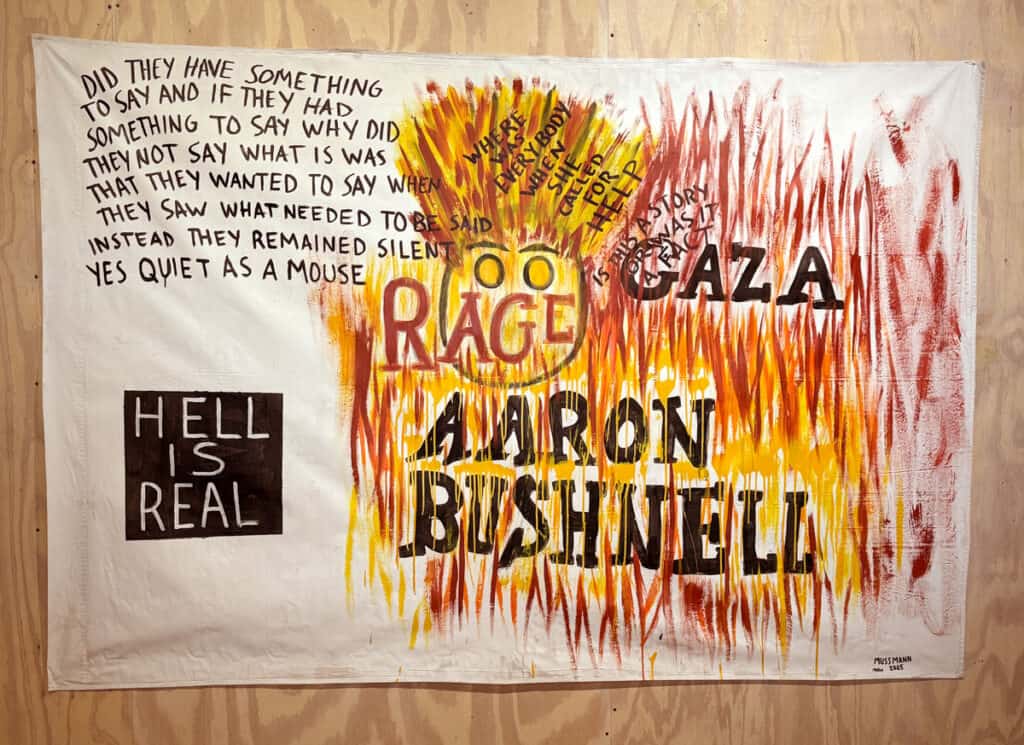 DID THEY HAVE SOMETHING
TO SAY AND IF THEY HAD
SOMETHING TO SAY WHY DID
THEY NOT SAY WHAT IS WAS
THAT THEY WANTED TO SAY WHEN
THEY SAW WHAT NEEDED TO BE SAID
INSTEAD THEY REMAINED SILENT
YES QUIET AS A MOUSE
WHERE
WAS
EVERYBODY
WHEN
SHE
CALLED
FOR
HELP
IS THIS A STORY
OR WAS IT
A FACT
GAZA
RAGE
AARON
BUSHNELL
HELL
IS
REAL
MUSSMANN
2025